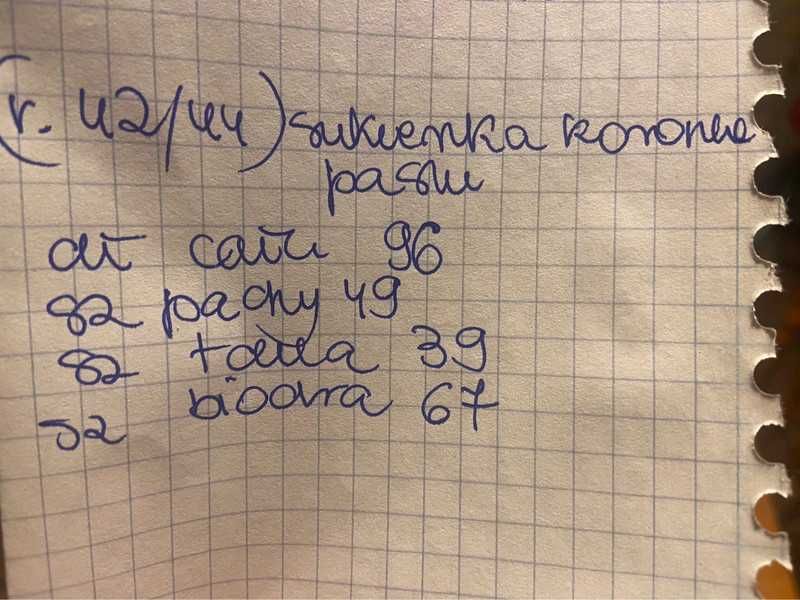 (r. 42/44) sukienka kolorowe
paski
dł całk 96
sz pachy 49
sz talia 39
sz biodra 67